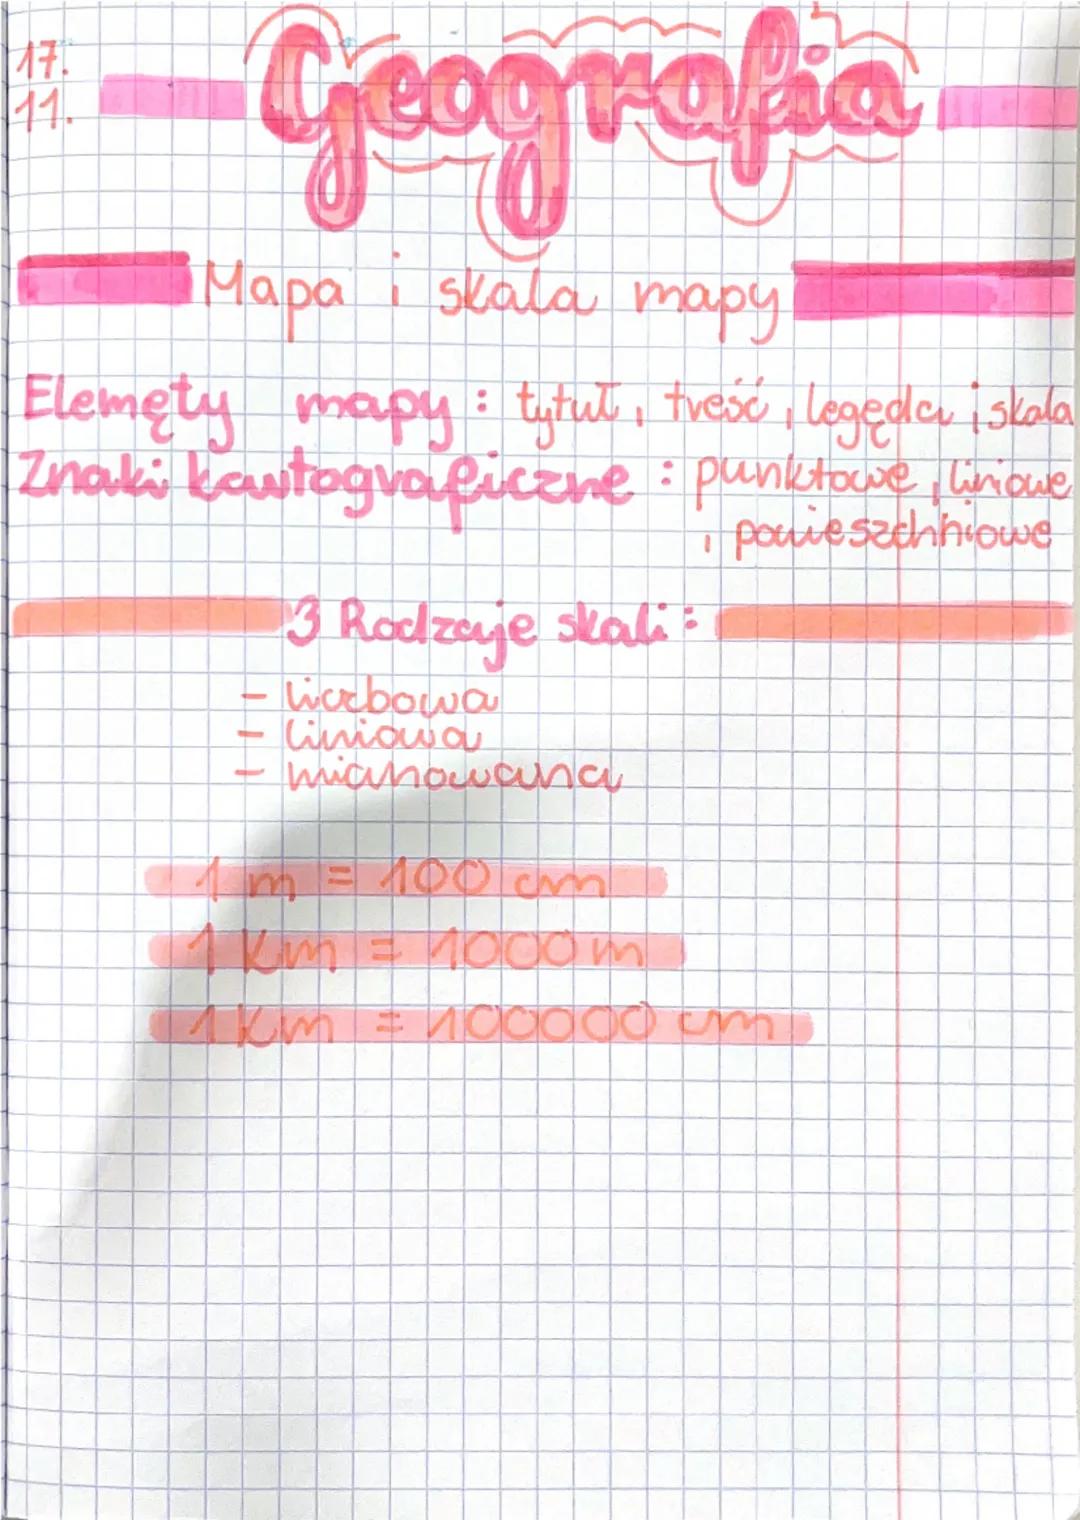 17.
11.
Geografia
Mapa i skala mapy
Elemęty mapy : tytuł, treść, legęda i skala
Znaki kartograficzne : punktowe, liniowe
, powieszchniowe
3 Rodzaje skali :
- liczbowa
- liniowa
- mianowana
1 m = 100 cm
1 km = 1000 m
1 km = 100000 cm